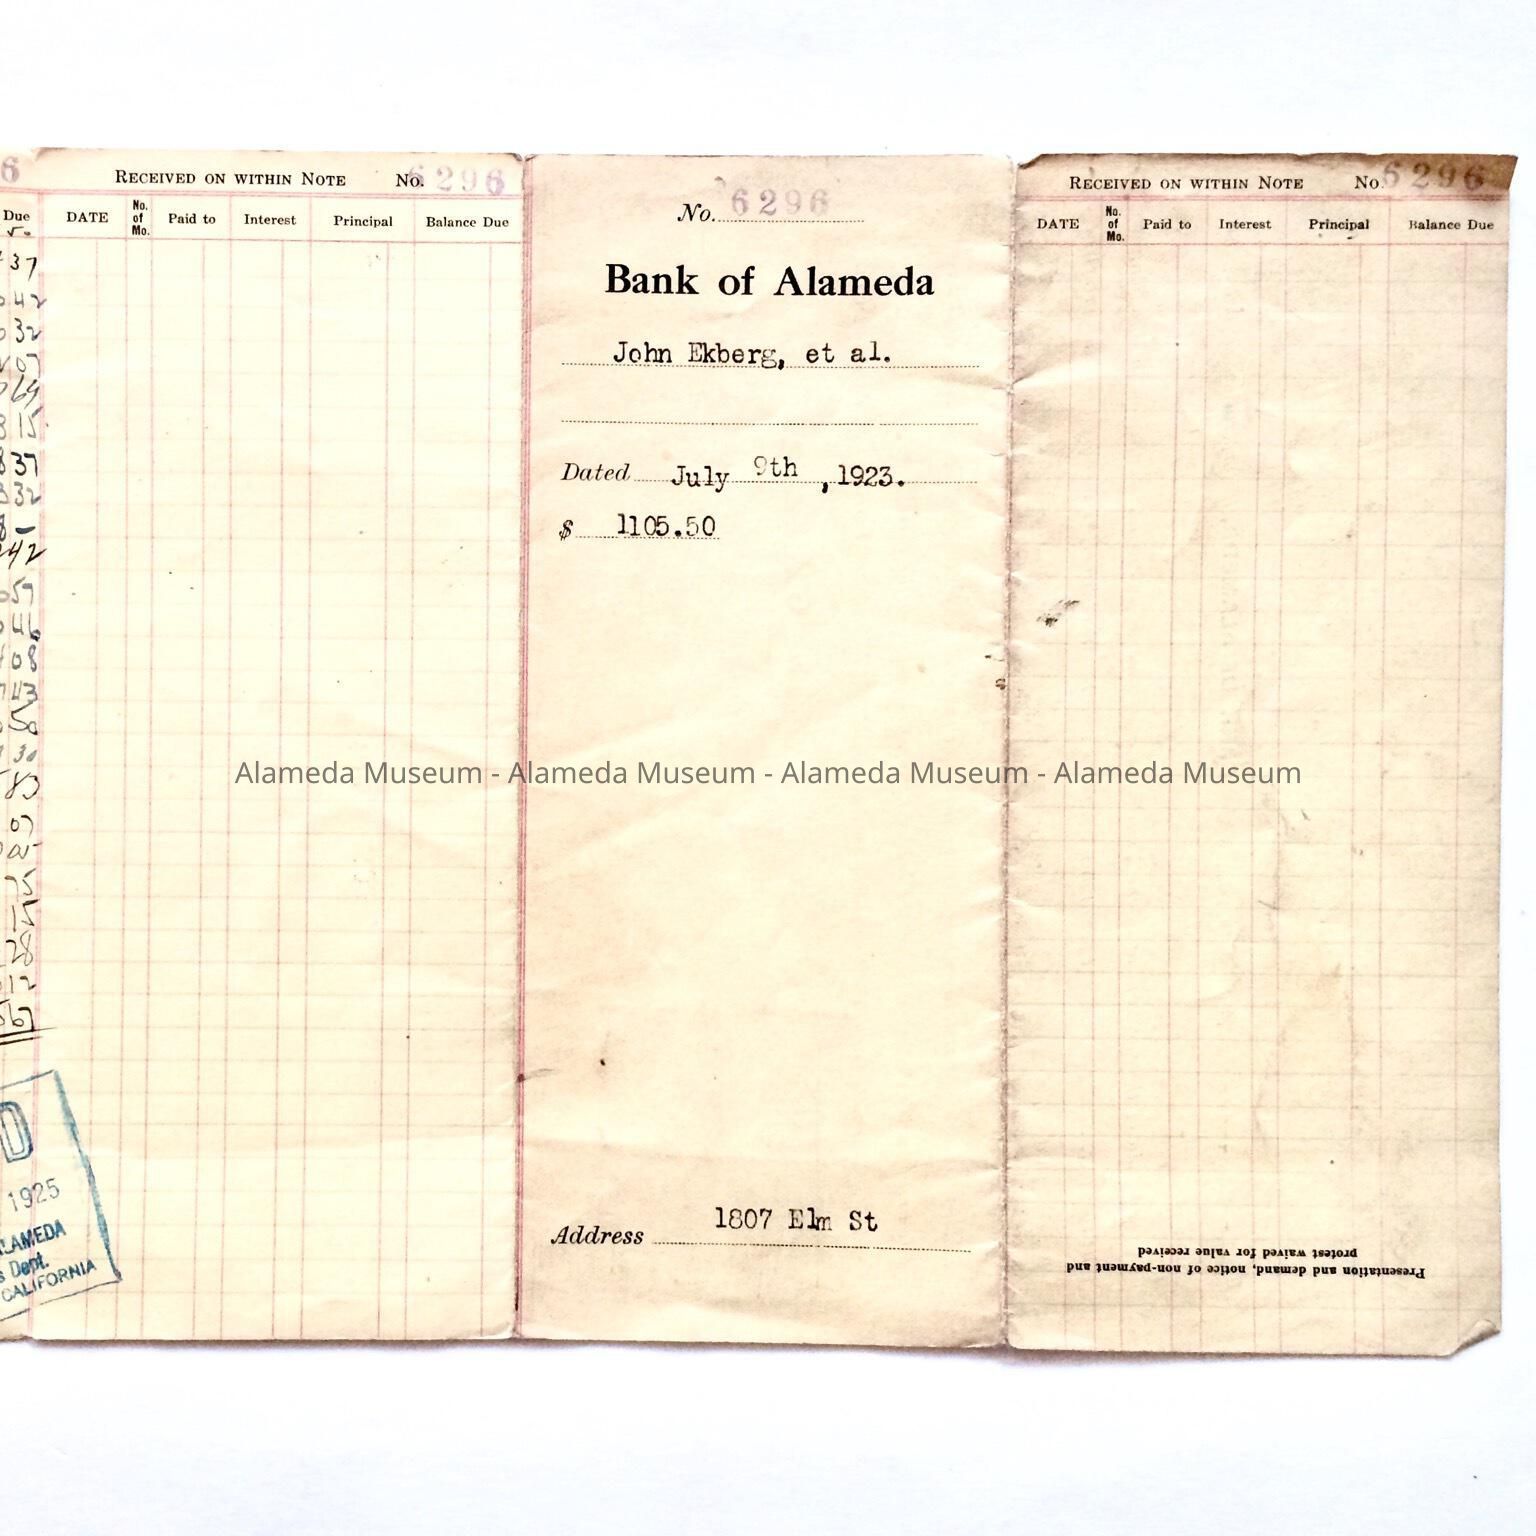 6
Due
37
42
32
07
64
15
37
32
42
57
46
08
43
50
30
83
07
28
12
67
D
1925
ALAMEDA
s Dept.
CALIFORNIA
RECEIVED ON WITHIN NOTE No. 6296
DATE No. of Mo. Paid to Interest Principal Balance Due
No. 6296
Bank of Alameda
John Ekberg, et al.
Dated July 9th, 1923.
$ 1105.50
Address 1807 Elm St
RECEIVED ON WITHIN NOTE No. 6296
DATE No. of Mo. Paid to Interest Principal Balance Due
Presentation and demand, notice of non-payment and
protest waived for value received
Alameda Museum - Alameda Museum - Alameda Museum - Alameda Museum